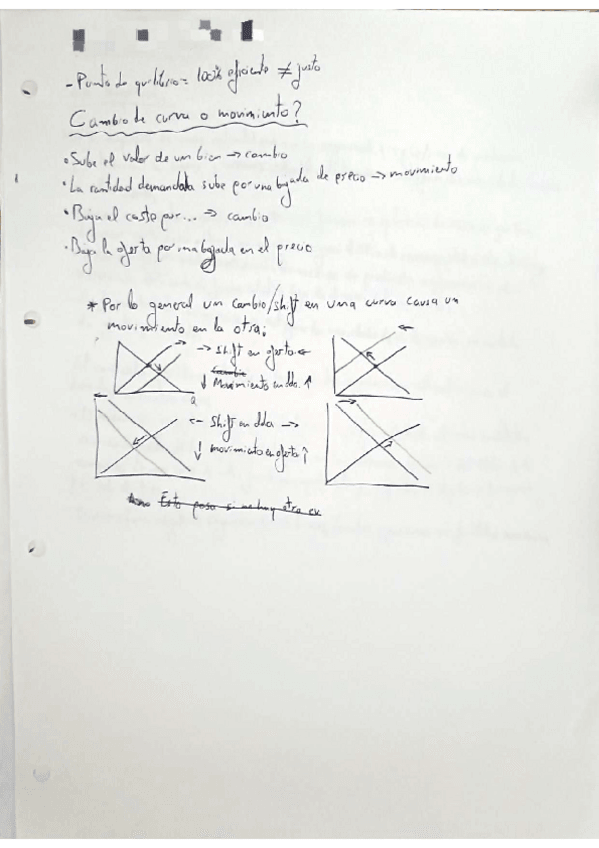 - Punto de equilibrio = 100% eficiente ≠ justo
Cambio de curva o movimiento?
• Sube el valor de un bien → cambio
• La cantidad demandada sube por una bajada de precio → movimiento
• Baja el costo por... → cambio
• Baja la oferta por una bajada en el precio
* Por lo general un cambio/shift en una curva causa un
movimiento en la otra:
→ shift en oferta ←
↓ Movimiento en dda. ↑
Q
← Shift en dda →
↓ movimiento en oferta ↑
Esto pasa si no hay otra